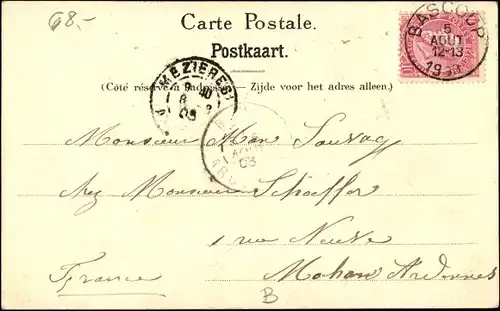 68.-
Carte Postale.
Postkaart.
(Côté réservé à l'adresse. — Zijde voor het adres alleen.)
BASCOUP
5
AOUT
12-13
19
MEZIERES
03
AOUT
03
Monsieur Man Sauvag
chez Monsieur Schoffer
1 rue Neuve
Mohon Ardennes
France
B